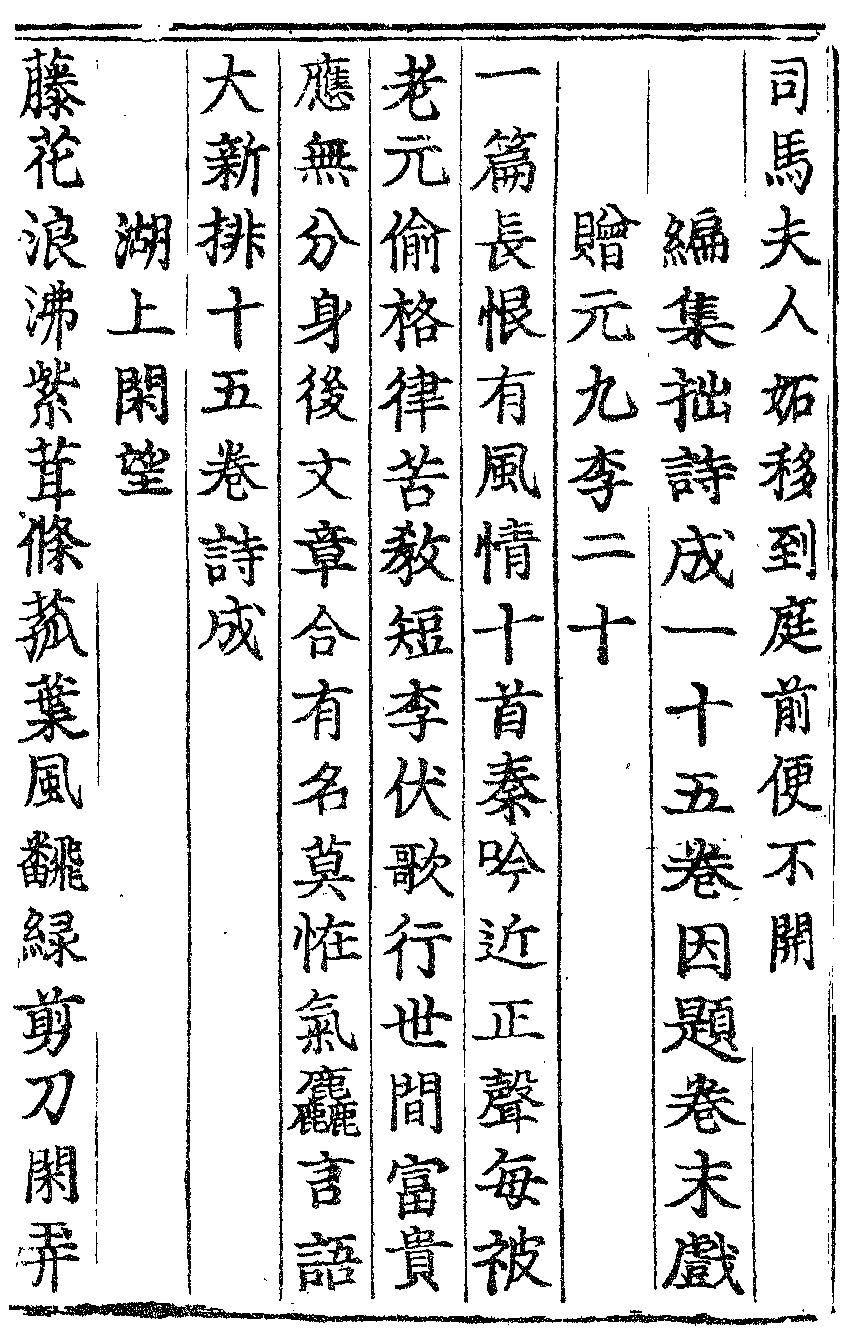 司馬夫人妬移到庭前便不開
編集拙詩成一十五卷因題卷末戲
贈元九李二十
一篇長恨有風情十首秦吟近正聲每被
老元偷格律苦教短李伏歌行世間富貴
應無分身後文章合有名莫恠氣麤言語
大新排十五卷詩成
湖上閑望
藤花浪沸紫茸條菰葉風翻綠剪刀閑弄